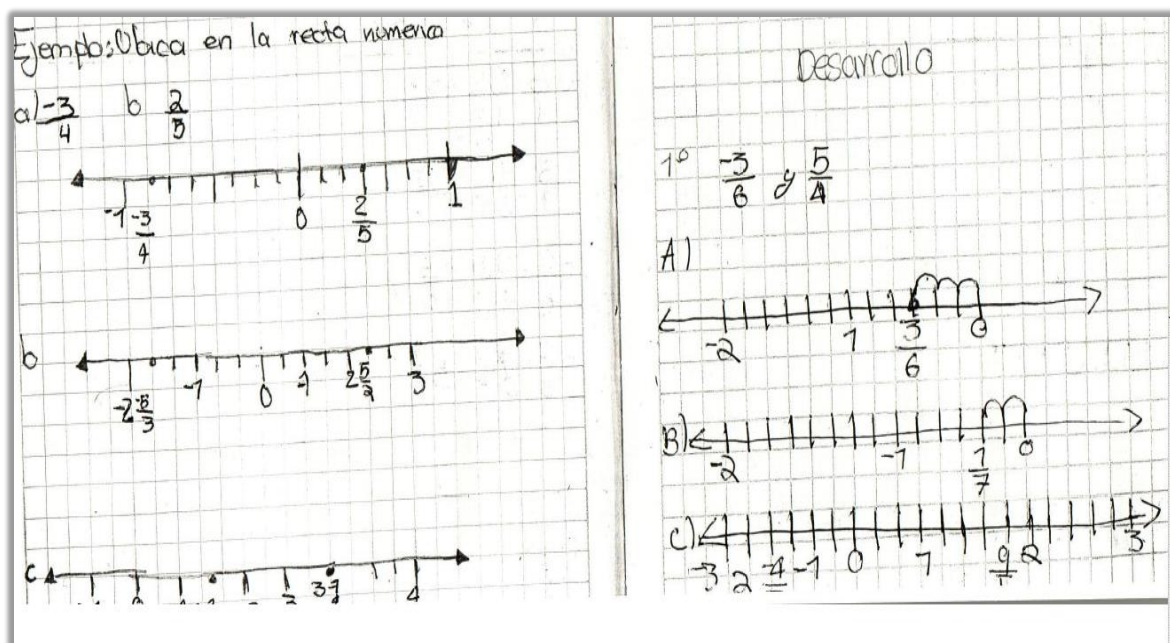 Ejemplo: Ubica en la recta numerica
a) -3/4 b 2/5
-1 -3/4 0 2/5 1
b
-2 -5/3 -1 0 1 2 5/2 3
c
3 4
Desarrollo
1º -3/6 y 5/4
A)
-2 1 3/6 0
B)
-2 -1 1/7 0
C)
-3 2 -4 -1 0 1 9 2 3